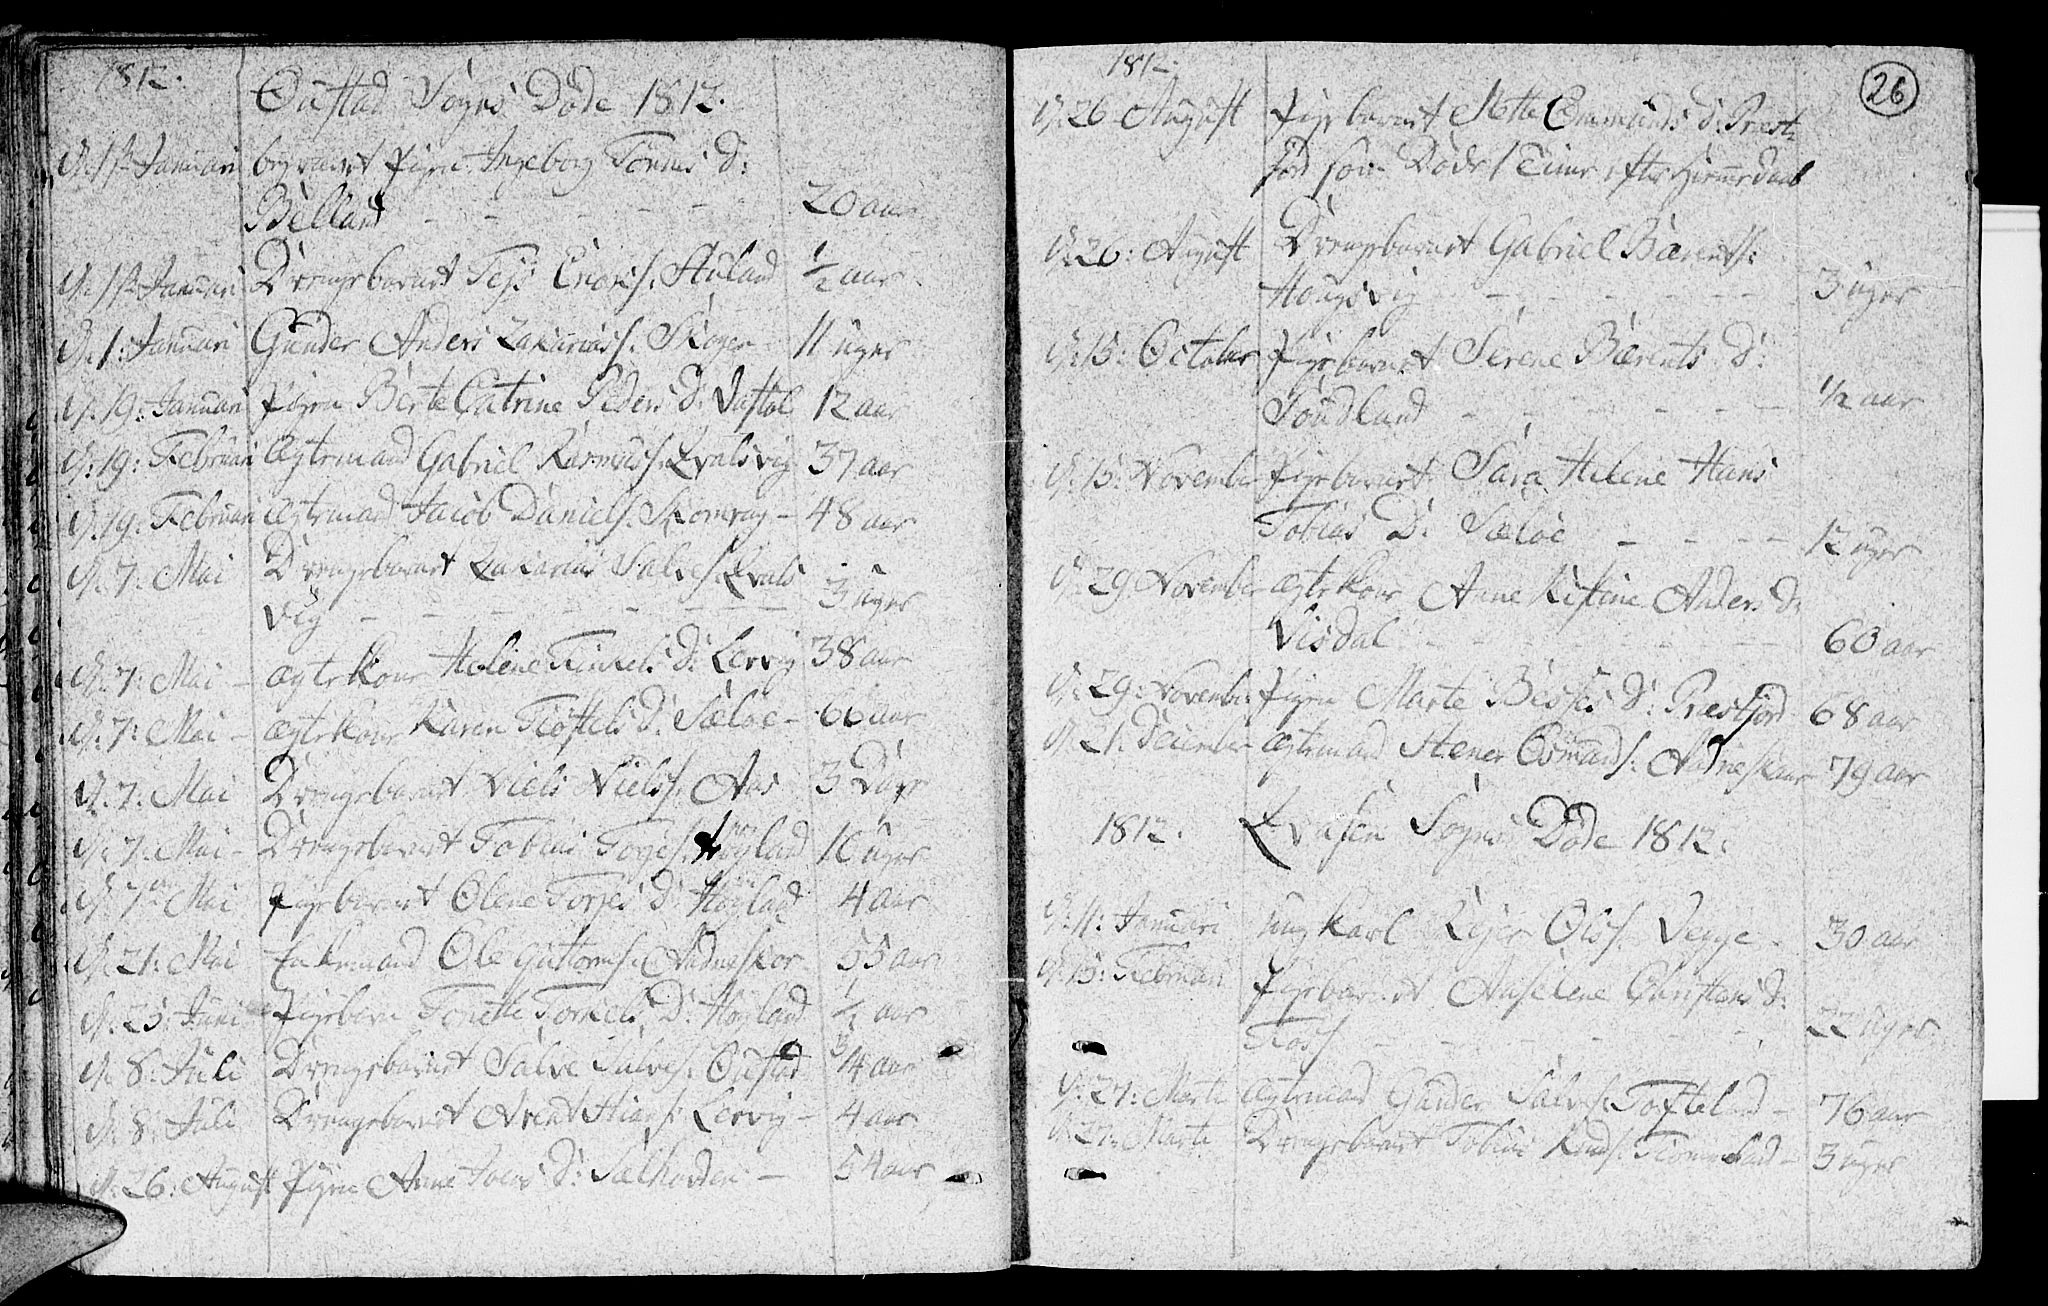 1812.
Oustad Sogns Døde 1812.
d. 1st Januari begravet Pigen Ingeborg Tønnis D:
Belland - - - - - 20 aar
d. 1st Januari Drengebarnet Teis Erichs. Stuland 1/2 aar
d. 1: Januari Gunder Anders Zakarias S. Skoger 11 uger
d. 19: Januari Pigen Berte Catrine Peders D: 12 aar
d: 19: Februari Ægtemand Gabriel Rasmus S. Qvalsvig 37 aar
d. 19: Februari Ægtemand Jacob Daniels. Skomrag - 48 aar
d. 7: Mai Drengebarnet Zakarias Salves. Qvals
vig - - - - - 3 uger
d. 7: Mai - ægtekone Helene Tinkels D: Lervig 38 aar
d. 7: Mai - ægtekone Karen Tiøstels D: Sæløe - 66 aar
d. 7: Mai Drengebarnet Niels Niels S. Aas 3 Dage
d. 7: Mai - Drengebarnet Tobias Toges. Høyland 16 uger
d. 7: Mai Pigebarnet Olene Torjes D: Høyland 4 aar
d. 21: Mai Enkemand Ole Guttorms. Andneskor 55 aar
d. 25: Juni Pigebarn Tonette Torkels D: Høyland 1/2 aar
d. 8: Juli Drengebarnet Salve Salves. Oustad 3/4 aar
d. 8: Juli Drengebarnet Arent S. Lervig - 4 aar
d. 26: August Pigen Anne D: Sælhovden - 54 aar
1812.
26
d. 26 August Pigebarnet Mette Omunds D: Præst
fiord som Døde 1 Time efter Hiemmedaab
d. 26: August Drengebarnet Gabriel Bærents:
Hougsvig - - - - - 3 uger
d. 15: October Pigebarnet Serene Bærents D:
Soudland - - - - - 1/2 aar
d. 15: November Pigebarnet Sara Helene Hans
Tobias D: Sæløe - - - - 12 uger
d. 29 November Ægtekone Anne Kistine Anders D:
Visdal - - - - - 60 aar
d. 29: November Pigen Marte D: Præstfiord 68 aar
d. 21. December Ægtemand Stener Osmunds: Andneskaar 79 aar
1812. Qvasen Sogns Døde 1812:
d: 11: Januari ung Karl Rejer Ols S. Vegge 30 aar
d. 15: Februari Pigebarnet Anselene Christens D:
Foss - - - - 22 Uger
d. 27: Marti ægtemand Gunder Salves. Tofteland - 76 aar
d. 27: Marti Drengebarnet Tobias Knuds. - 3 uger